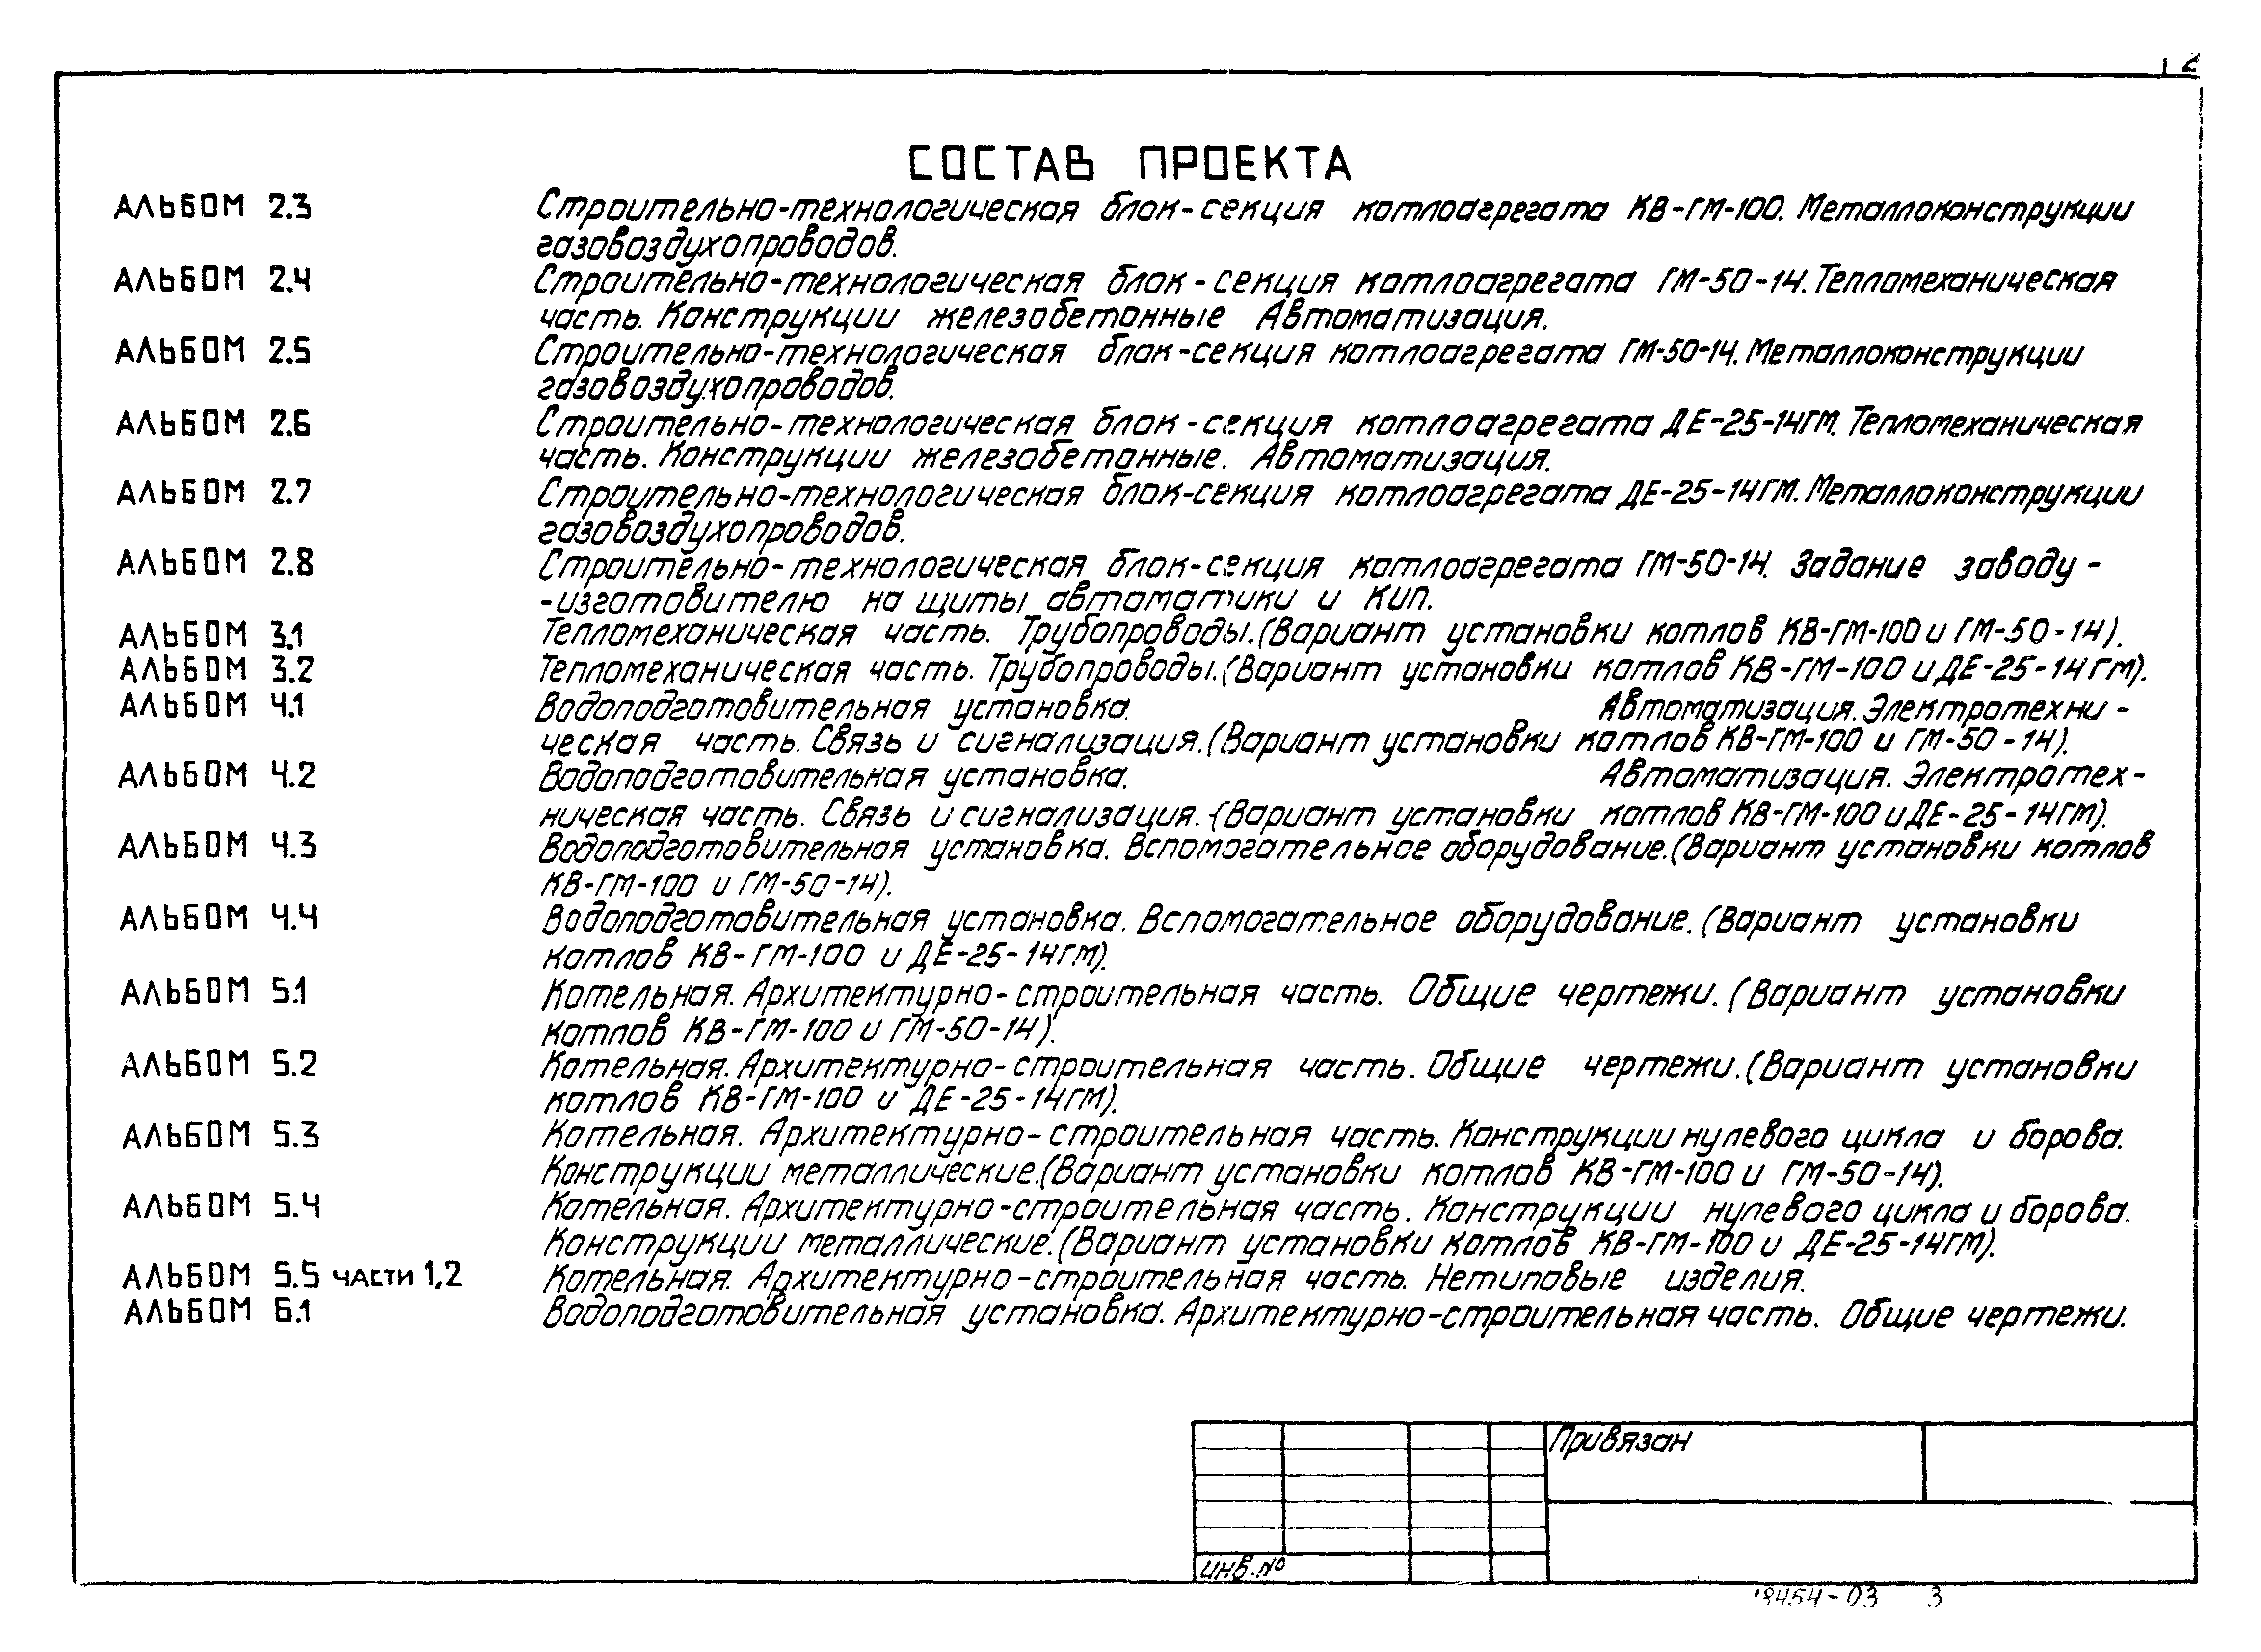 2
СОСТАВ ПРОЕКТА
АЛЬБОМ 2.3 Строительно-технологическая блок-секция котлоагрегата КВ-ГМ-100. Металлоконструкции
газовоздухопроводов.
АЛЬБОМ 2.4 Строительно-технологическая блок-секция котлоагрегата ГМ-50-14. Тепломеханическая
часть. Конструкции железобетонные Автоматизация.
АЛЬБОМ 2.5 Строительно-технологическая блок-секция котлоагрегата ГМ-50-14. Металлоконструкции
газовоздухопроводов.
АЛЬБОМ 2.6 Строительно-технологическая блок-секция котлоагрегата ДЕ-25-14ГМ. Тепломеханическая
часть. Конструкции железобетонные. Автоматизация.
АЛЬБОМ 2.7 Строительно-технологическая блок-секция котлоагрегата ДЕ-25-14ГМ. Металлоконструкции
газовоздухопроводов.
АЛЬБОМ 2.8 Строительно-технологическая блок-секция котлоагрегата ГМ-50-14. Задание заводу-
-изготовителю на щиты автоматики и Кип.
АЛЬБОМ 3.1 Тепломеханическая часть. Трубопроводы. (Вариант установки котлов КВ-ГМ-100 и ГМ-50-14).
АЛЬБОМ 3.2 Тепломеханическая часть. Трубопроводы. (Вариант установки котлов КВ-ГМ-100 и ДЕ-25-14ГМ).
АЛЬБОМ 4.1 Водоподготовительная установка. Автоматизация. Электротехни-
ческая часть. Связь и сигнализация. (Вариант установки котлов КВ-ГМ-100 и ГМ-50-14).
АЛЬБОМ 4.2 Водоподготовительная установка. Автоматизация. Электротех-
ническая часть. Связь и сигнализация. (Вариант установки котлов КВ-ГМ-100 и ДЕ-25-14ГМ).
АЛЬБОМ 4.3 Водоподготовительная установка. Вспомогательное оборудование. (Вариант установки котлов
КВ-ГМ-100 и ГМ-50-14).
АЛЬБОМ 4.4 Водоподготовительная установка. Вспомогательное оборудование. (Вариант установки
котлов КВ-ГМ-100 и ДЕ-25-14ГМ).
АЛЬБОМ 5.1 Котельная. Архитектурно-строительная часть. Общие чертежи. (Вариант установки
котлов КВ-ГМ-100 и ГМ-50-14).
АЛЬБОМ 5.2 Котельная. Архитектурно-строительная часть. Общие чертежи. (Вариант установки
котлов КВ-ГМ-100 и ДЕ-25-14ГМ).
АЛЬБОМ 5.3 Котельная. Архитектурно-строительная часть. Конструкции нулевого цикла и борова.
Конструкции металлические. (Вариант установки котлов КВ-ГМ-100 и ГМ-50-14).
АЛЬБОМ 5.4 Котельная. Архитектурно-строительная часть. Конструкции нулевого цикла и борова.
Конструкции металлические. (Вариант установки котлов КВ-ГМ-100 и ДЕ-25-14ГМ).
АЛЬБОМ 5.5 ЧАСТИ 1,2 Котельная. Архитектурно-строительная часть. Нетиповые изделия.
АЛЬБОМ 6.1 Водоподготовительная установка. Архитектурно-строительная часть. Общие чертежи.
Привязан
инв.№
18454-03 3